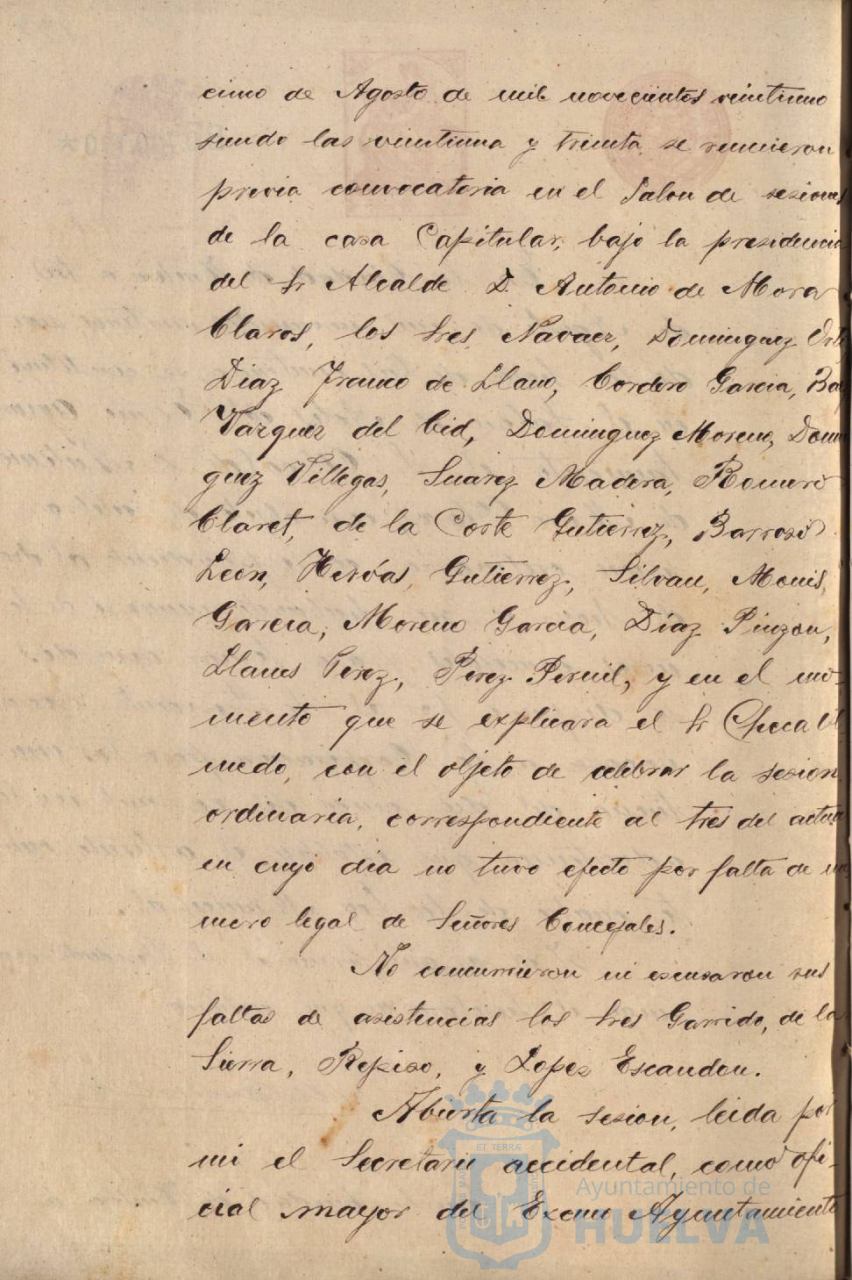 cinco de Agosto de mil novecientos veintiuno
siendo las veintiuna y treinta se reunieron
previa convocatoria en el Salon de sesiones
de la casa Capitular, bajo la presidencia
del Sr Alcalde D. Antonio de Mora
Claros, los Sres Navaez, Dominguez Orte
Diaz Franco de Llano, Cordero Garcia,
Vazquez del Cid, Dominguez Moreno, Domin
guez Villegas, Suarez Madera, Romero
Claret, de la Corte Gutierrez, Barroso
León, Hervás, Gutierrez, Silvan, Monis,
Garcia, Moreno Garcia, Díaz Pinzon,
Llanes Perez, Perez Pernil, y en el mo-
mento que se explicara el Sr Checa Ol
medo, con el objeto de celebrar la sesion
ordinaria, correspondiente al tres del actual
en cuyo dia no tuvo efecto por falta de nu
mero legal de Señores Concejales.
No concurrieron ni escusaron sus
faltas de asistencias los Sres Garrido, de la
Sierra, Repiso, y Lopez Escandon.
Abierta la sesion, leida por
mi el Secretario accidental, como ofi-
cial mayor del Excmo Ayuntamiento
ET TERRÆ
Ayuntamiento de
HUELVA